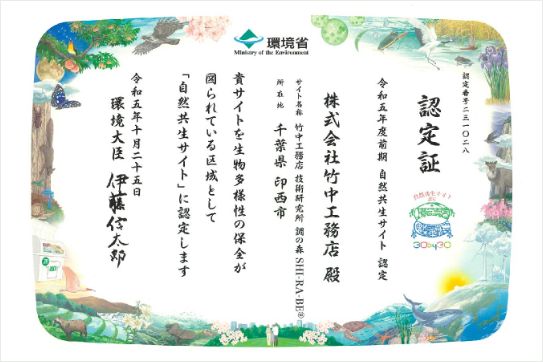 環境省
Ministry of the Environment
認定番号二三一〇二八
認定証
令和五年度前期 自然共生サイト 認定
株式会社竹中工務店 殿
サイト名称 竹中工務店 技術研究所 調の森 SHI-RA-BE®
所在地 千葉県 印西市
貴サイトを生物多様性の保全が
図られている区域として
「自然共生サイト」に認定します
令和五年十月二十五日
環境大臣 伊藤信太郎
30by30